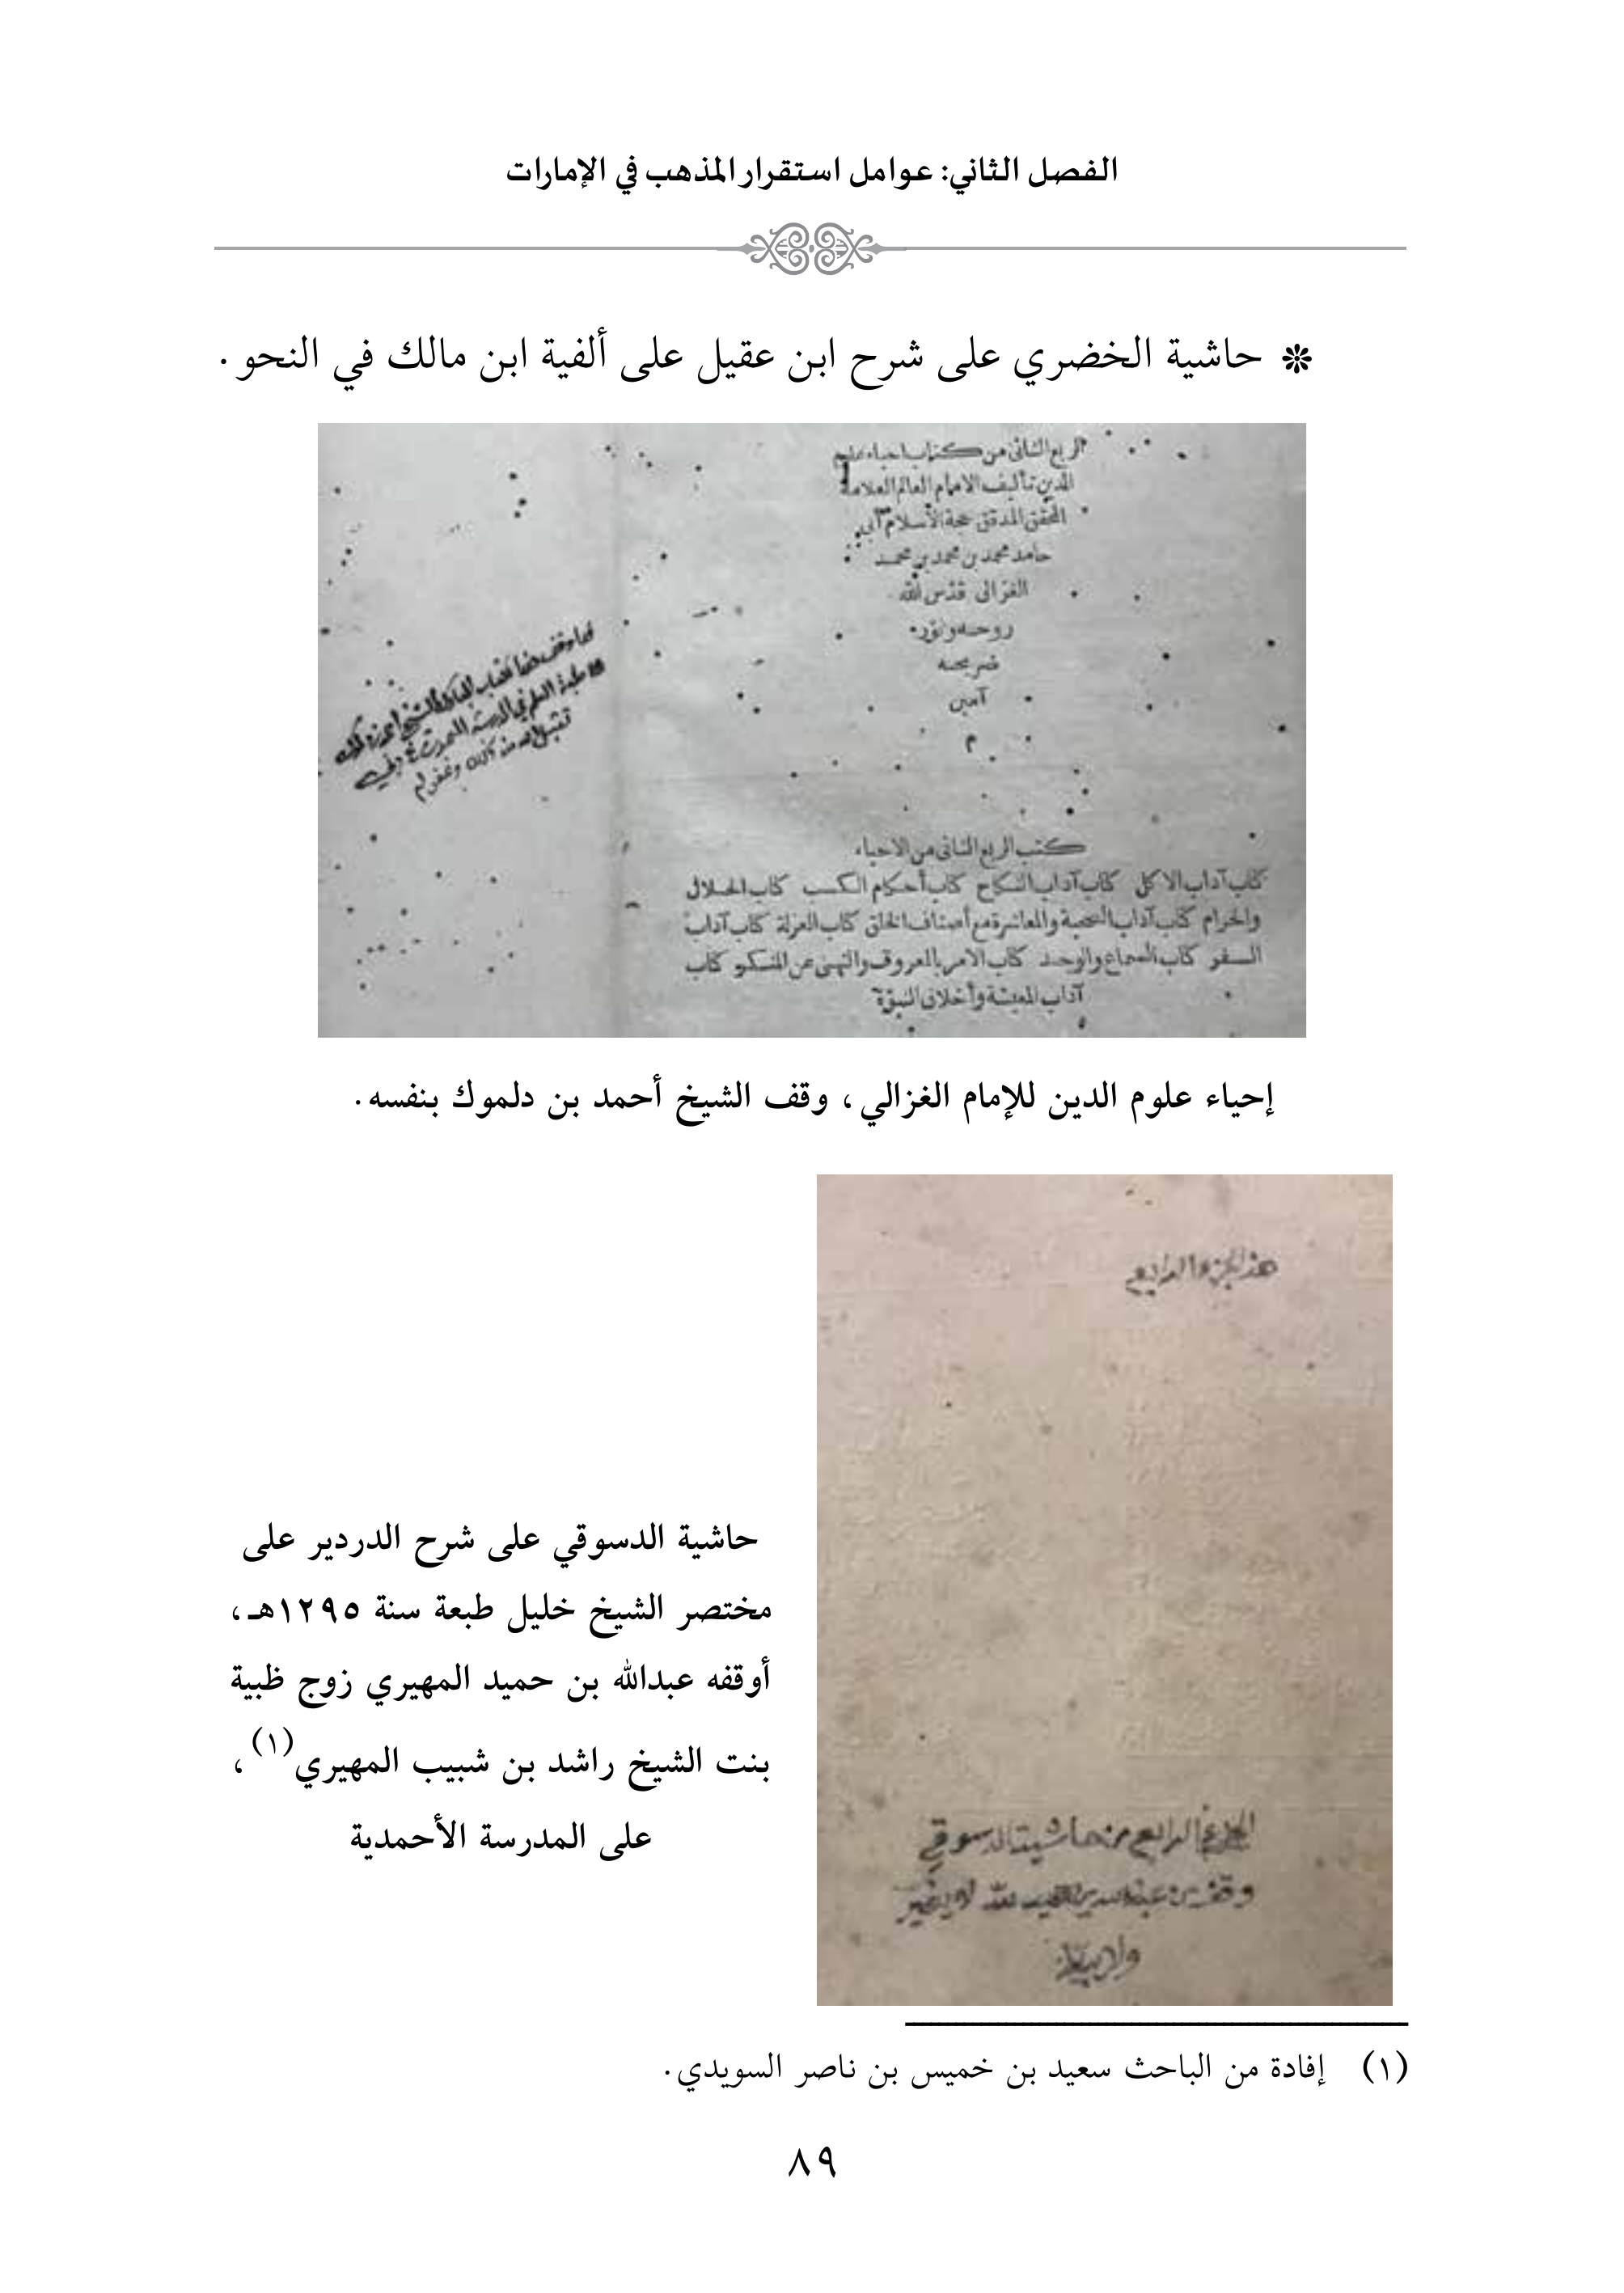 الفصل الثاني: عوامل استقرار المذهب في الإمارات
❋ حاشية الخضري على شرح ابن عقيل على ألفية ابن مالك في النحو.
الربع الثاني من كتاب احياء علوم
الدين تأليف الامام العالم العلامة
المحقق المدقق حجة الأسلام أبي
حامد محمد بن محمد بن محمد
الغزالى قدّس الله
روحه ونوّر
ضريحه
آمين
م
تقبل الله من وغفر له
كتب الربع الثانى من الاحياء
كتاب آداب الاكل كتاب آداب النكاح كتاب أحكام الكسب كتاب الحلال
والحرام كتاب آداب الصحبة والمعاشرة مع أصناف الخلق كتاب العزلة كتاب آداب
السفر كتاب السماع والوجد كتاب الامر بالمعروف والنهى عن المنكر كتاب
آداب المعيشة وأخلاق النبوّة
إحياء علوم الدين للإمام الغزالي، وقف الشيخ أحمد بن دلموك بنفسه.
هذا الجزء الرابع
الجزء الرابع من حاشية الدسوقي
وقف بن لله لا يغير
ولا
حاشية الدسوقي على شرح الدردير على
مختصر الشيخ خليل طبعة سنة ١٢٩٥هـ،
أوقفه عبدالله بن حميد المهيري زوج ظبية
بنت الشيخ راشد بن شبيب المهيري(١)،
على المدرسة الأحمدية
(١) إفادة من الباحث سعيد بن خميس بن ناصر السويدي.
٨٩